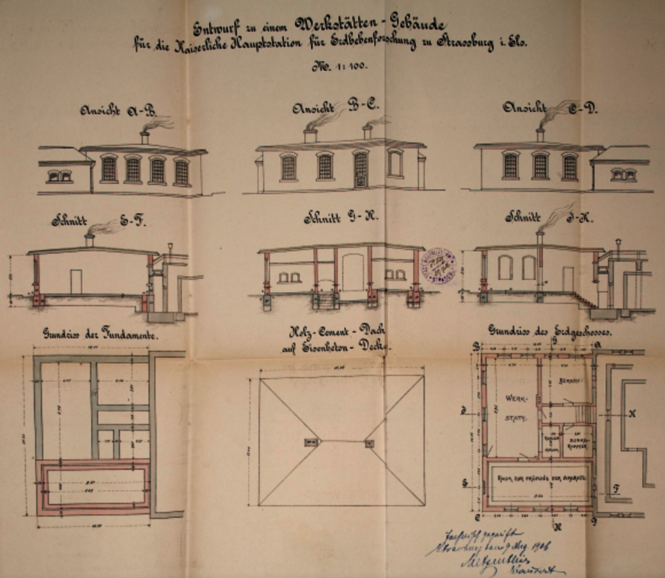 Entwurf zu einem Werkstätten-Gebäude
für die Kaiserliche Hauptstation für Erdbebenforschung zu Strassburg i. Els.
M. 1:100.
Ansicht A-B.
Ansicht B-C.
Ansicht C-D.
Schnitt E-F.
Schnitt G-H.
Schnitt J-K.
Grundriss der Fundamente.
Holz-Cement-Dach
auf Eisenbeton-Decke.
Grundriss des Erdgeschosses.
WERK-
STATT.
BUREAU.
DUNKEL-
KAMMER
RAUM ZUR PRÜFUNG DER APPARATE
Technisch geprüft
Strassburg, den 9 Aug. 1906